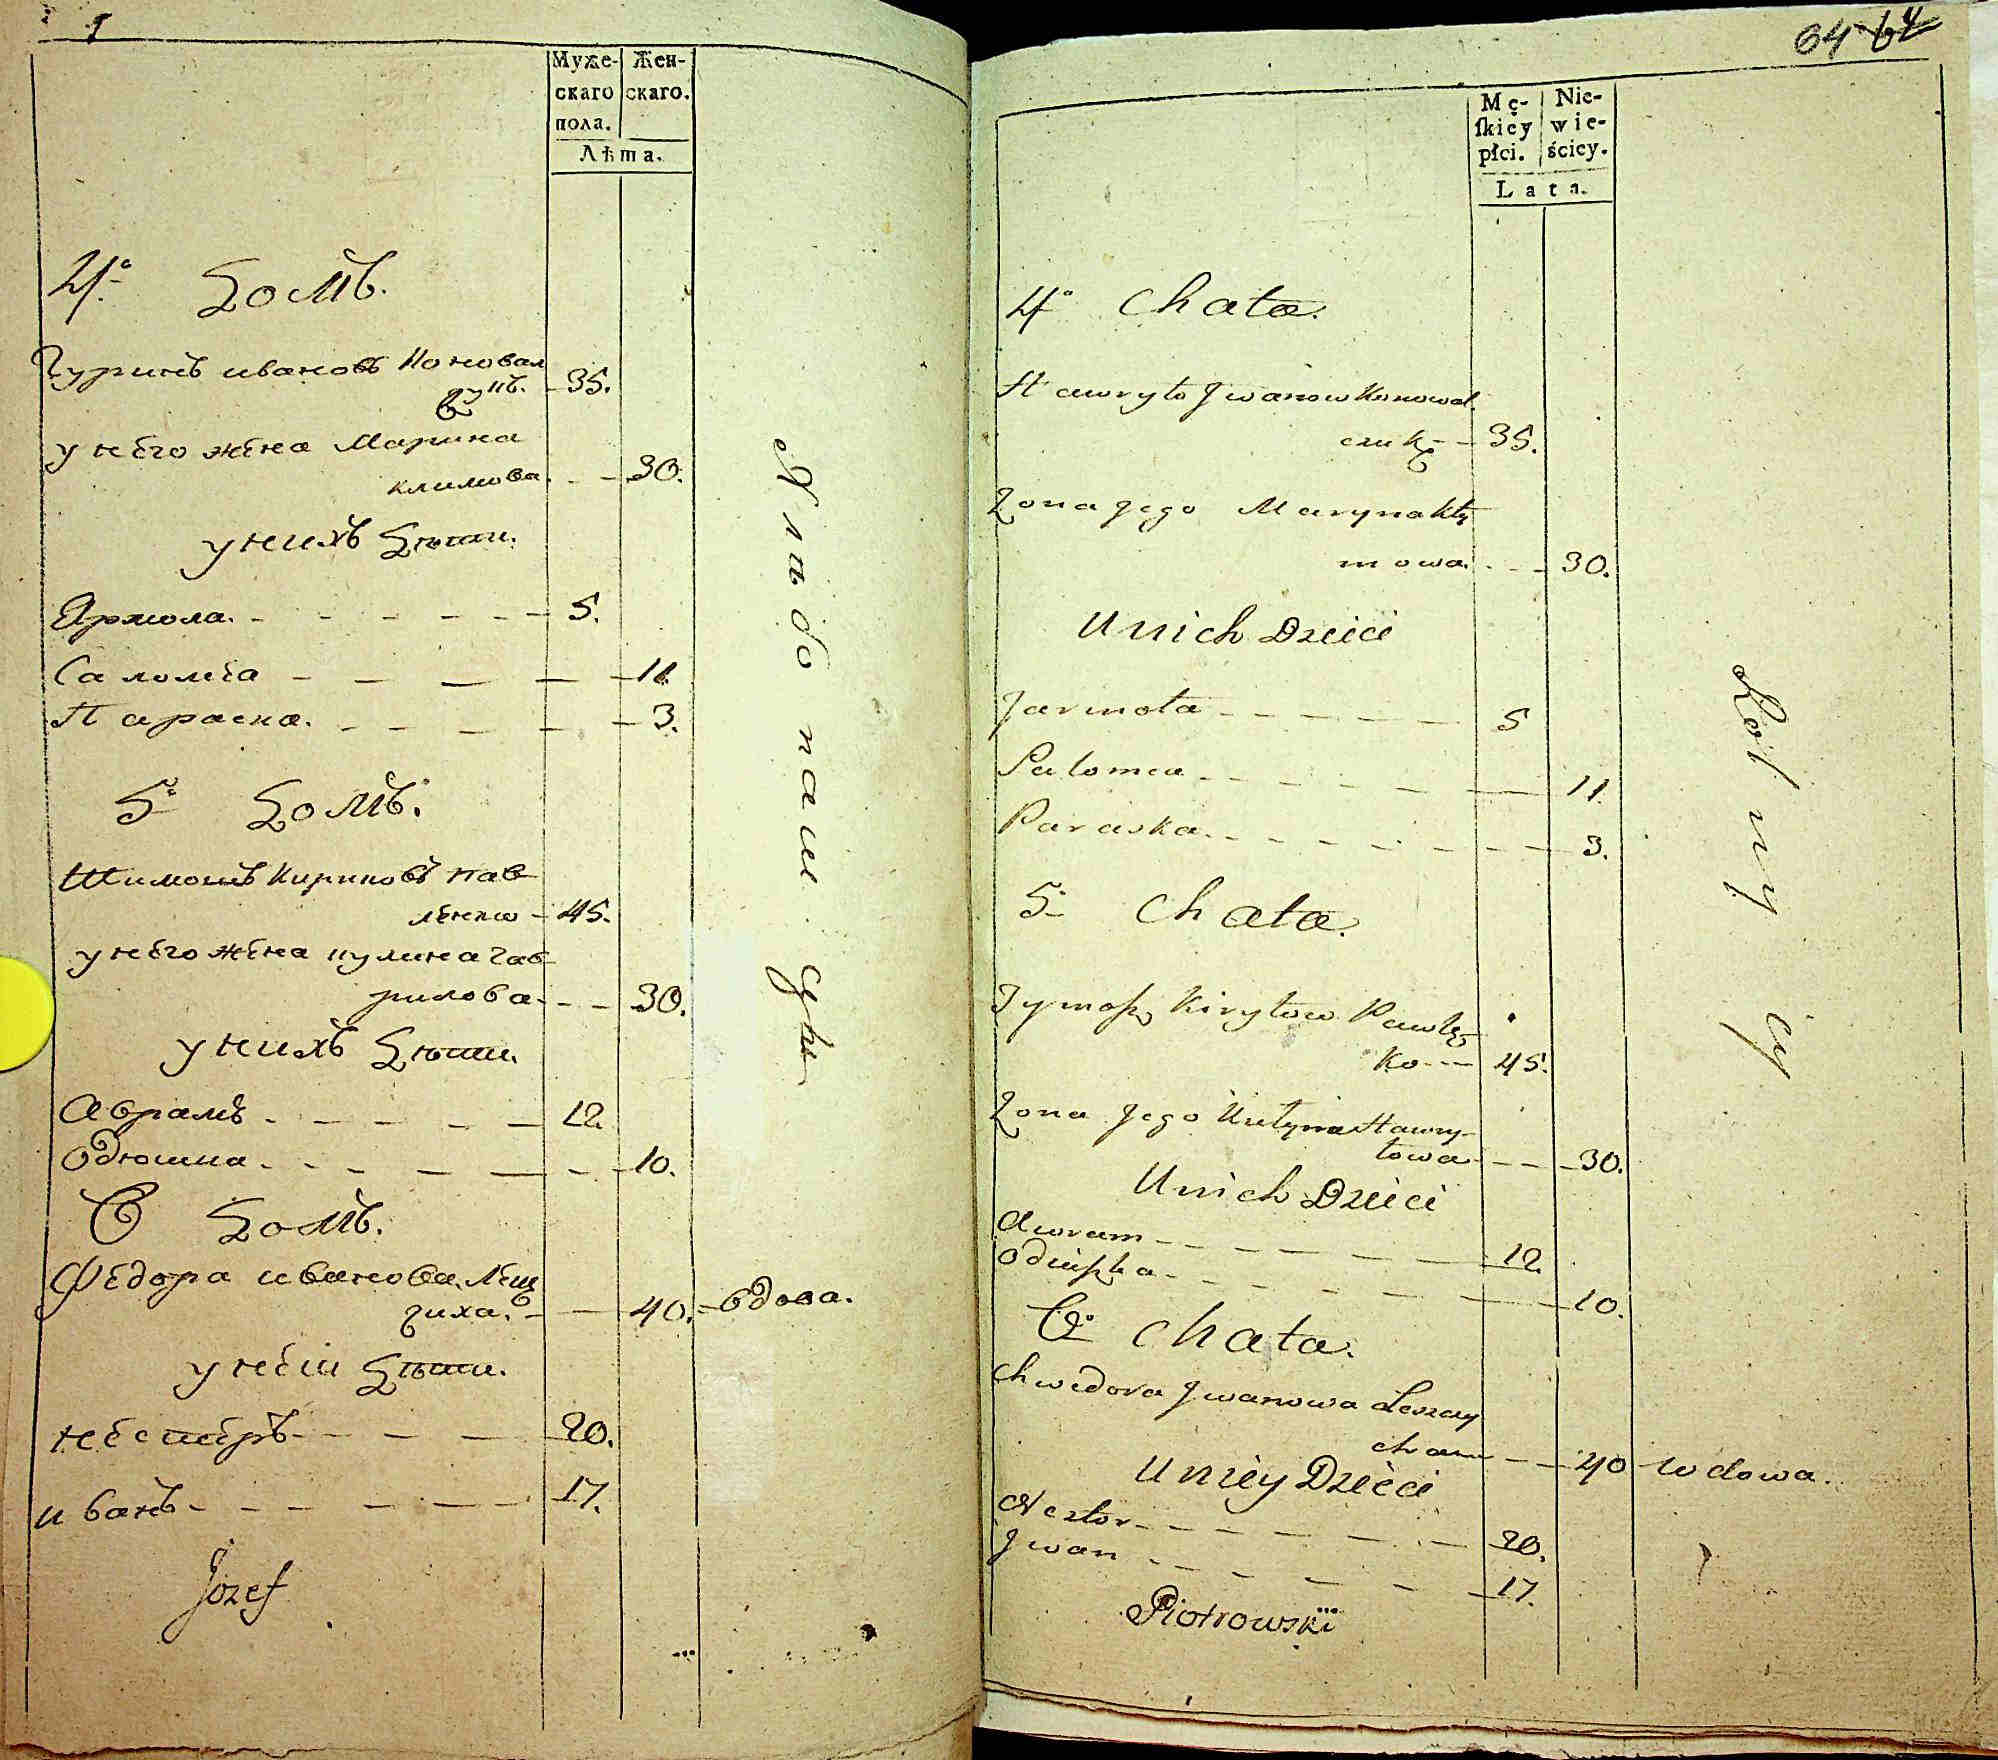 Муже-
скаго
пола.
Жен-
скаго.
Лѣта.
4° Домъ.
ивановъ Коновал
чукъ. 35.
у него жена Марина
климова. 30.
у нихъ Дѣти.
Ярмола. 5.
Саломея 11
Параска. 3.
5 Домъ.
Шимошъ Кириловъ Пав
ленко 45.
у него жена кулина Гав
рилова. 30.
у нихъ Дѣти.
Аврамъ. 12.
Одюшка. 10.
6 Домъ.
Федора иванова Лещ
чиха. 40. вдова.
у ней Дѣти.
Нестеръ 20.
иванъ 17.
Józef
Хлѣбопашцы
64 64
Mę-
ſkiey
płci.
Nie-
wie-
ściey.
Lata.
4° Chata.
Hawryło Jwanow Konowal
czuk 35.
Zona Jego Maryna Kły
mowa. 30.
U nich Dzieci
Jarmoła 5
Sałomea 11.
Paraska 3.
5 Chata.
Kiryłow Pawłę
ko 45.
Zona Jego Kułyna Hawry-
łowa 30.
U nich Dzieci
Awram 12.
Odiuszka 10.
6° Chata.
Chwedora Jwanowa Leszczy
cha 40 wdowa.
U niey Dzieci
Nestor 20.
Jwan 17.
Piotrowski
Rolnycy